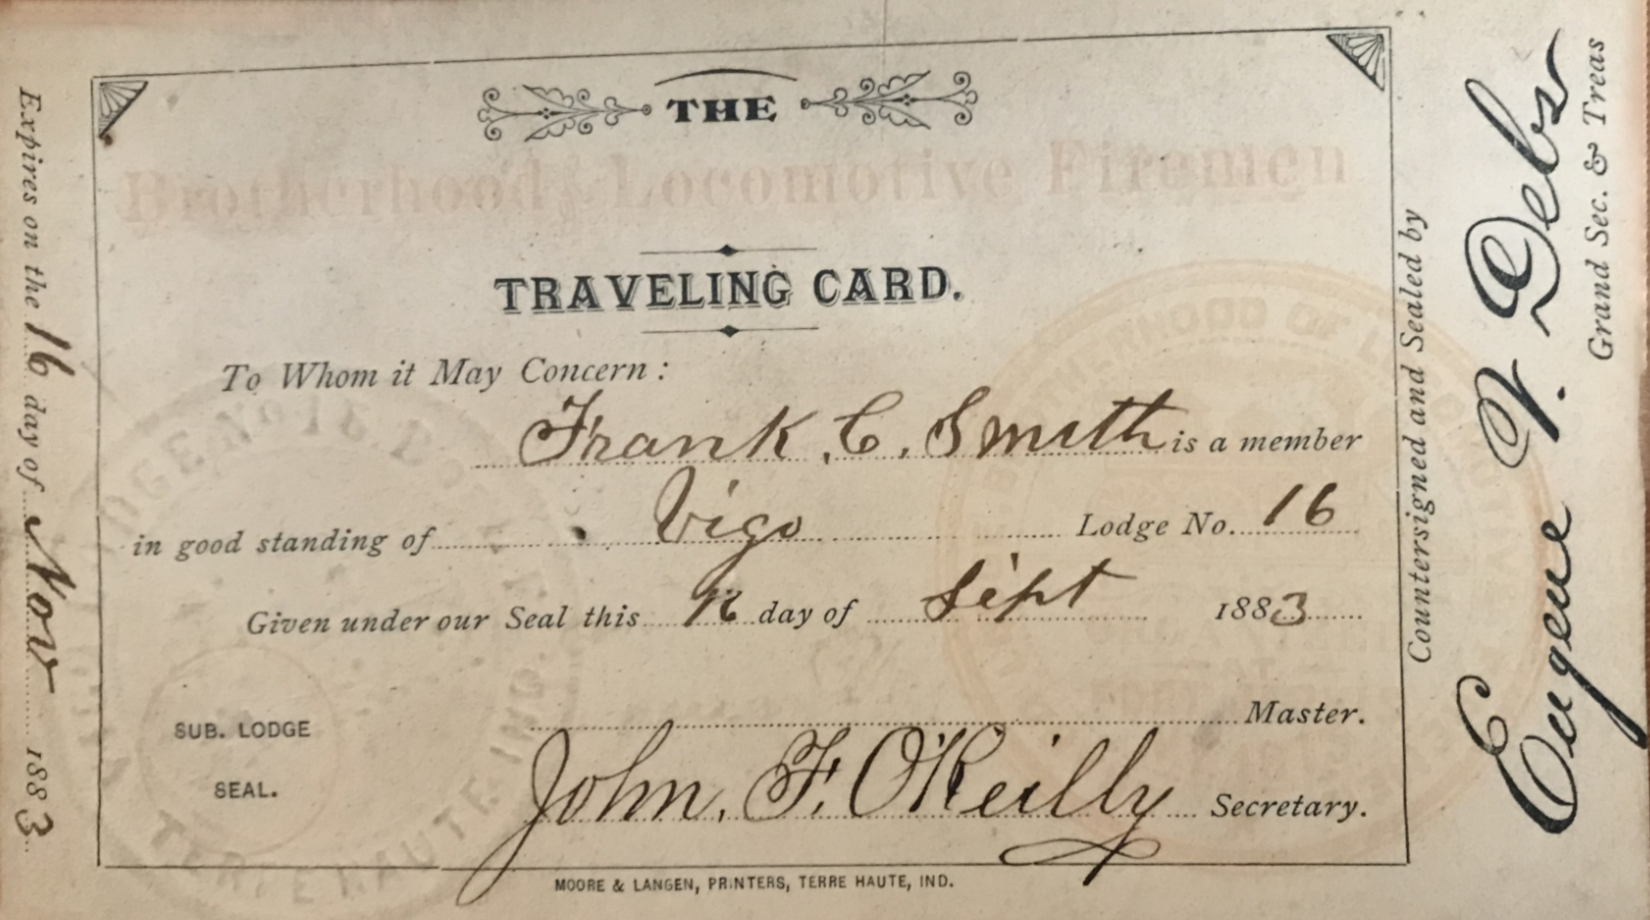 THE
Brotherhood of Locomotive Firemen
TRAVELING CARD.
To Whom it May Concern:
Frank. C. Smith is a member
in good standing of Vigo Lodge No. 16
Given under our Seal this day of Sept 1883
Master.
SUB. LODGE
SEAL.
John. F. O'Reilly Secretary.
MOORE & LANGEN, PRINTERS, TERRE HAUTE, IND.
Expires on the 16 day of Nov 1883
Countersigned and Sealed by
Eugene V. Debs
Grand Sec. & Treas
LODGE No 16 B.
TERRE HAUTE, IND.
BROTHERHOOD OF LOCOMOTIVE